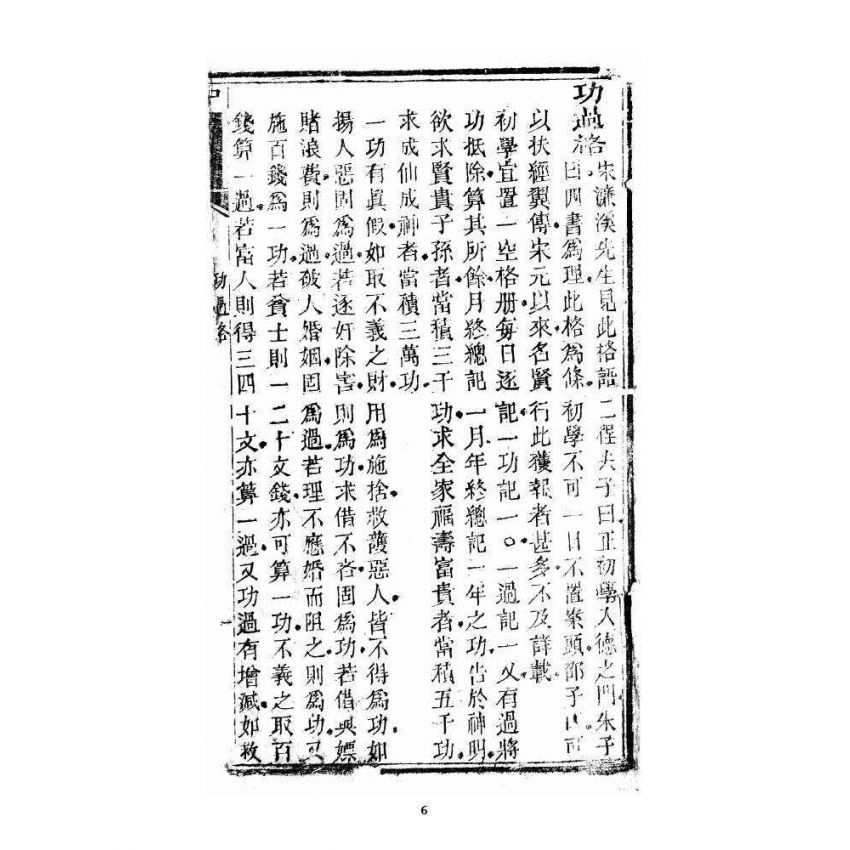 功過格
宋濂溪先生見此格語二程夫子曰正初學入德之門朱子
曰四書爲理此格爲條初學不可一日不置案頭邵子曰可
以扶經翼傳宋元以來名賢行此獲報者甚多不及詳載
初學宜置一空格册每日逐記一功記一○一過記一乂有過將
功抵除算其所餘月終總記一月年終總記一年之功告於神明
欲求賢貴子孫者當積三千功求全家福壽富貴者當積五千功
求成仙成神者當積三萬功
一功有眞假如取不義之財用爲施捨救護惡人皆不得爲功如
揚人惡固爲過若逐奸除害則爲功求借不吝固爲功若借與嫖
賭浪費則爲過破人婚姻固爲過若理不應婚而阻之則爲功又
施百錢爲一功若貧士則一二十文錢亦可算一功不義之取百
錢算一過若富人則得三四十文亦算一過又功過有增減如救
功過格
一
6